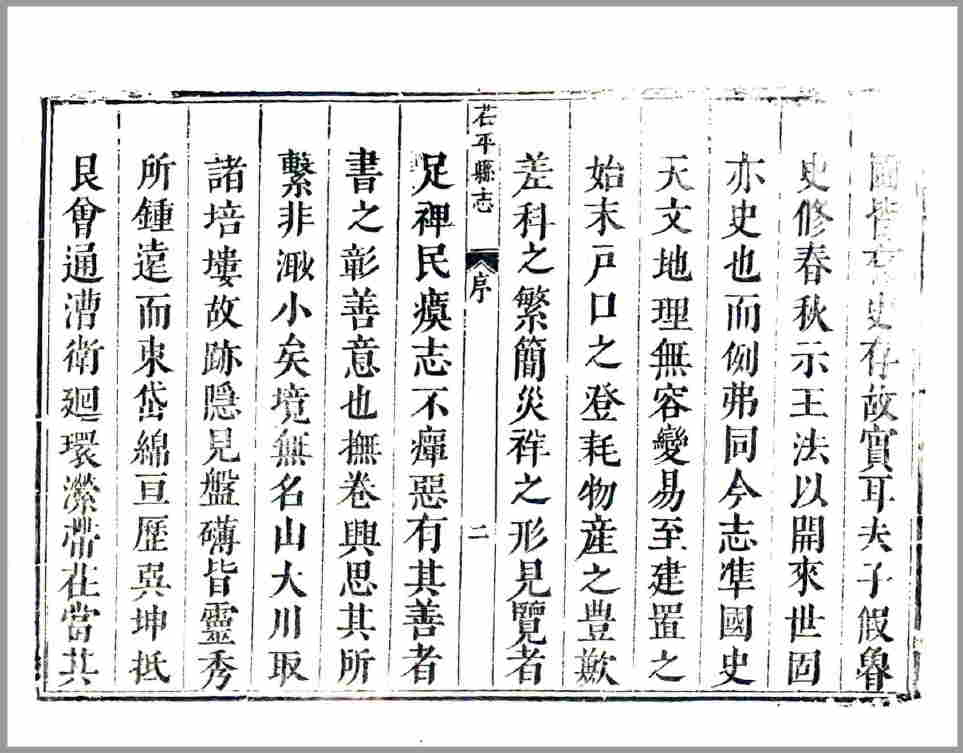 圖皆史存故實耳夫子假魯
史修春秋示王法以開來世固
亦史也而例弗同今志準國史
天文地理無容變易至建置之
始末戶口之登耗物産之豊歉
差科之繁簡災祥之形見覽者
茌平縣志 序 二
足裨民瘼志不癉惡有其善者
書之彰善意也撫卷興思其所
繫非小矣境無名山大川取
諸培塿故跡隱見盤礴皆靈秀
所鍾遠而東岱綿亘歷巽坤抵
艮曾通漕衛廻環瀠帶茌當其